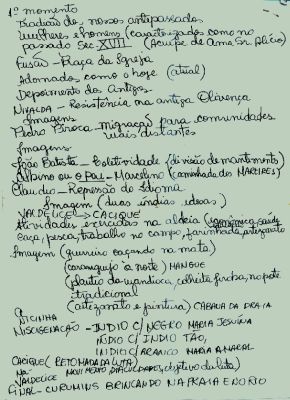 1º momento
Tradição dos nossos antepassados
Mulheres e homens (caracterizados como no
passado Sec XVIII (Acuipe de Ama Sr. Alício)
Fusão - Praça da Igreja
Adornados como o hoje (atual)
Depoimento dos Antigos
NIVALDA - Resistência na antiga Olivença
Imagens
Pedro Pinoca - Migração para comunidades
mais distantes
Imagens
João Batista - Coletividade (divisão de mantimentos)
Albino ou - Marcelino (caminhada dos MARTIRES)
Claudio - Repressão do Idioma
Imagem (duas índias idosas)
VALDELICE -> CACIQUE
Atividades exercidas na aldeia (saúde
caça, pesca, trabalho no campo, farinhada, artesanato
Imagem (guerreiro caçando na mata)
(caranguejo à noite) MANGUE
(plantio da mandioca, colheita, no pote
tradicional
(artesanato e pintura) CABANA DA PRAIA
NICINHA
MISCIGENAÇÃO - INDIO C/ NEGRO MARIA JESUÍNA
INDIO C/ INDIO TÃO,
INDIO C/ MARIA AMARAL
CACIQUE (RETOMADA DA LUTA)
VALDELICE MOVIMENTO DIFICULDADES, objetivo da luta)
FINAL - CURUMINS BRINCANDO NA PRAIA E NO RIO